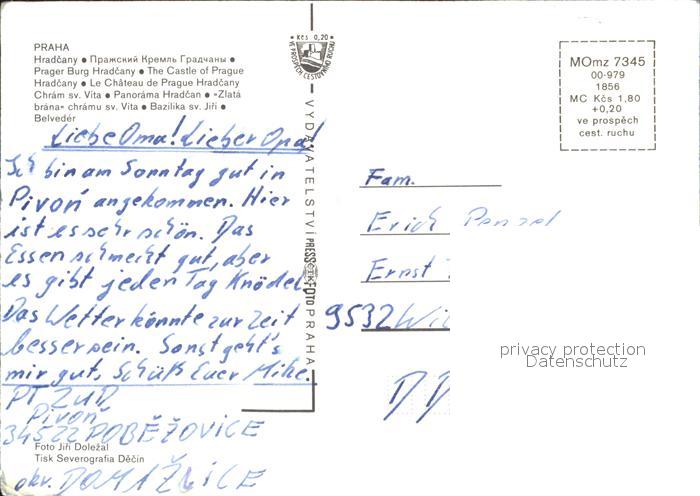 PRAHA
Hradčany ● Пражский Кремль Градчаны ●
Prager Burg Hradčany ● The Castle of Prague
Hradčany ● Le Château de Prague Hradčany
Chrám sv. Víta ● Panoráma Hradčan ● »Zlatá
brána« chrámu sv. Víta ● Bazilika sv. Jiří ●
Belvedér
Liebe Oma! Lieber Opa!
Ich bin am Sonntag gut in
Pivoň angekommen. Hier
ist es sehr schön. Das
Essen schmeckt gut, aber
es gibt jeden Tag Knödel.
Das Wetter könnte zur Zeit
besser sein. Sonst geht's
mir gut. Euer Mike.
PT ZUD
Pivoň
34522 POBĚŽOVICE
Foto Jiří Doležal
Tisk Severografia Děčín
okr. DOMAŽLICE
Kčs 0,20
VE PROSPĚCH CESTOVNÍHO RUCHU
VYDAVATELSTVÍ PRESSFOTO PRAHA
MOmz 7345
00-979
1856
MC Kčs 1,80
+0,20
ve prospěch
cest. ruchu
Fam.
Erich
Ernst
9532
privacy protection
Datenschutz